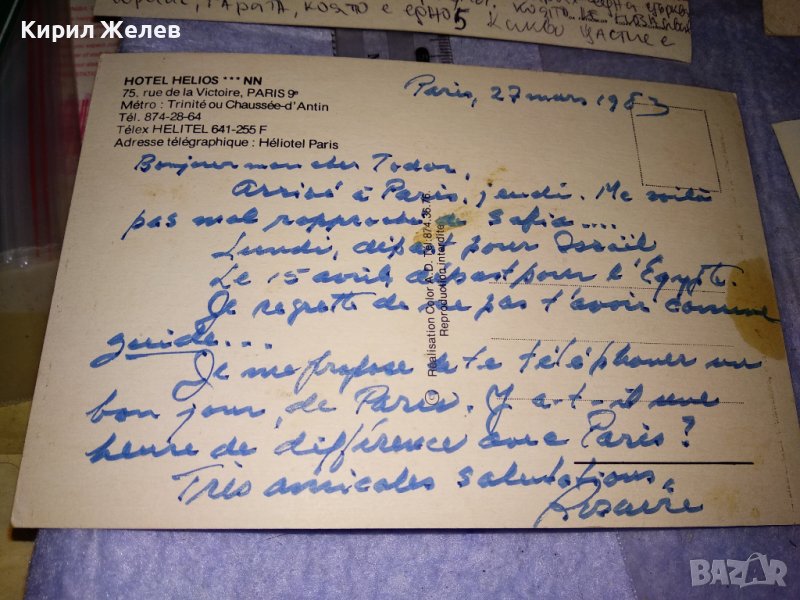 Кирил Желев
гарата, която е срно 5 Какво участие
HOTEL HELIOS *** NN
75, rue de la Victoire, PARIS 9e
Métro : Trinité ou Chaussée-d'Antin
Tél. 874-28-64
Télex HELITEL 641-255 F
Adresse télégraphique : Héliotel Paris
Paris, 27 mars 1983
Bonjour mon cher Todor,
Arrivé à Paris, jeudi. Me voilà
pas mal rapproché de Sofia....
Lundi, départ pour Israël
Le 15 avril, départ pour l'Égypte.
Je regrette de ne pas t'avoir comme
guide...
Je me propose de te téléphoner un
bon jour, de Paris. Y a-t-il une
heure de différence avec Paris?
Très amicales salutations,
Rosaire
© Réalisation Color A.D. Tél: 874.36.76.
Reproduction interdite
BAZAR